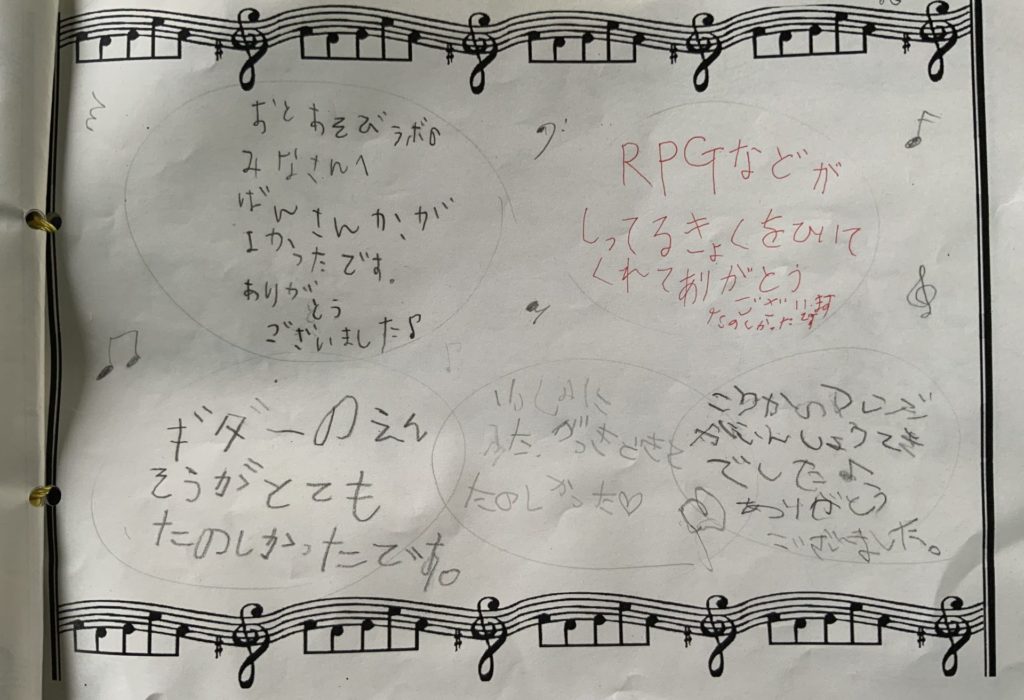 おとあそびラボ♪
みなさんへ
ばんさんかが
よかったです。
ありがとう
ございました♪
RPGなどが
しってるきょくをひいて
くれてありがとう
ございます
たのしかったです
ギターのえん
そうがとても
たのしかったです。
たのしかった♡
こうかのアレンジ
がいんしょうてき
でした♪
ありがとう
ございました。